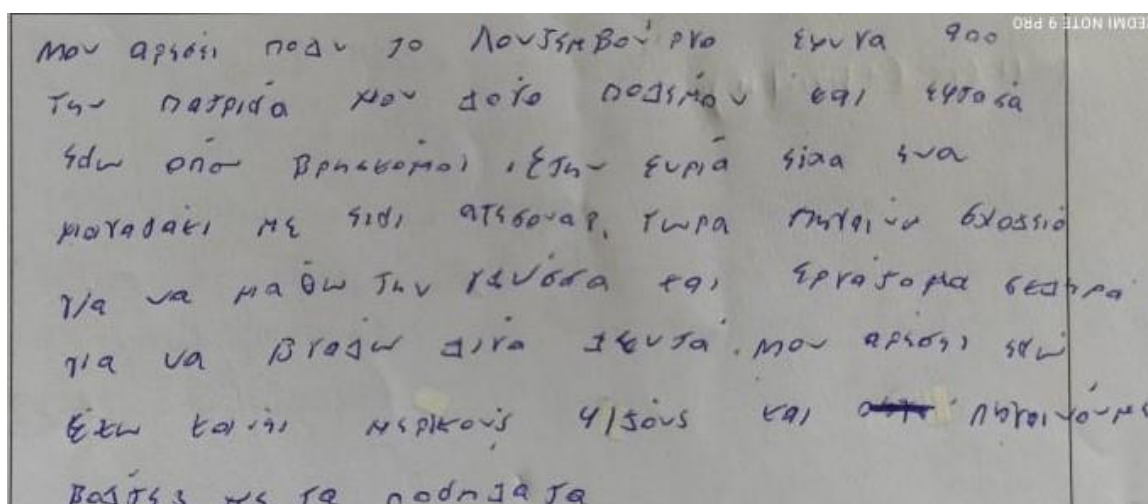 EDMI NOTE 9 PRO
Μου αρέσει πολυ το Λουξεμβούργο έφυγα απο
την πατρίδα μου λόγο πολέμου και έφτασα
εδω οπου βρησκομαι. Στην Συριά είχα ενα
μαγαδάκι με είδι ατεσουαρ. Τωρα πηγαίνω σχολείο
για να μαθω την γλύσσα και έργάζομα σκληρά
για να βγαλω λίγα λευτά. Μου αρέσει εδώ
έχω κανει μερικούς φίλους και πηγαινόυμε
βολτες με τα ποδηλατα